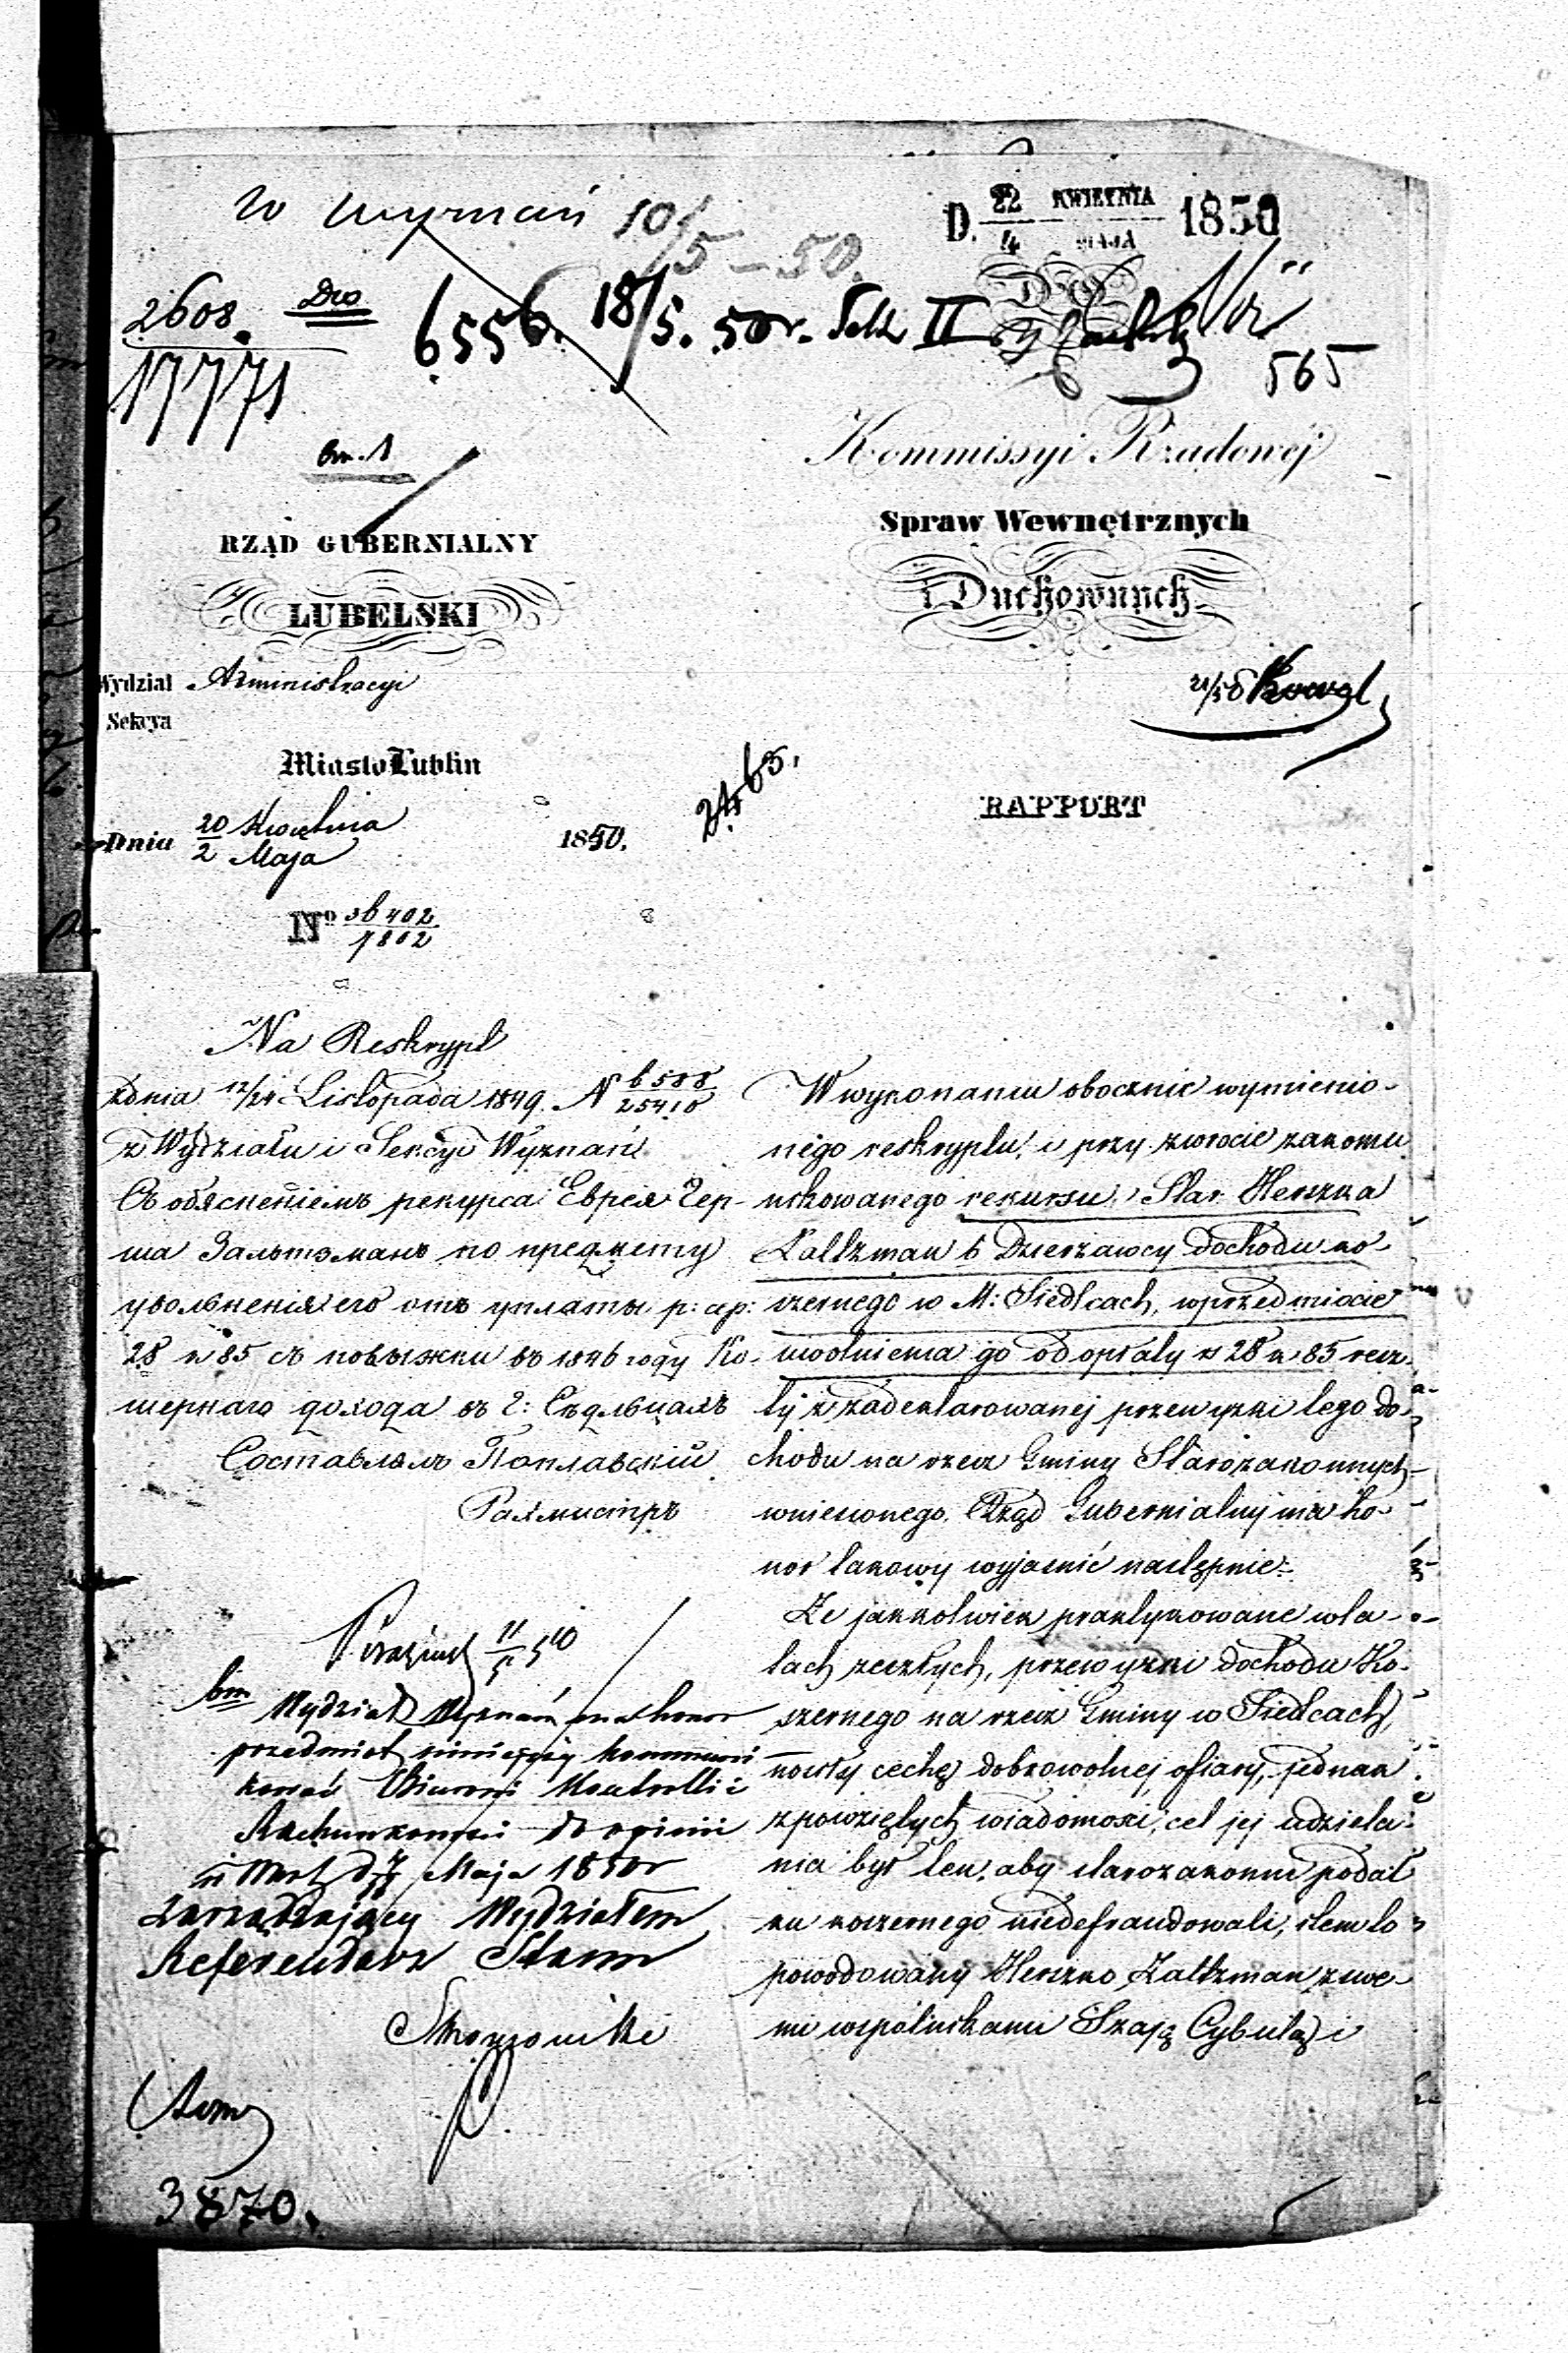 w wyznań 10/5 – 50.
D. 22 KWIETNIA / 4 MAJA 1850
2608. Dro
17771
6556. 18/5. 50 r. Sek II
565
DO
Kommissyi Rządowéj
Spraw Wewnętrznych
i Duchownych
RZĄD GUBERNIALNY
LUBELSKI
Wydział Administracyi
Sekcya
Miasto Lublin
Dnia 20 Kwietnia / 2 Maja 1850.
No 36402 / 7802
RAPPORT
Na Reskrypt
z dnia 12/24 Listopada 1849. N 6588 / 25410
z Wydziału i Sekcyi Wyznań
Съ объясненіемъ рекурса Еврея Гер-
ша Зальтзманъ по предмету
увольненія его отъ уплаты р: сер:
28 к 85 съ повышки въ 1846 году Ко-
шернаго дохода въ г: Сѣдльцахъ
Составлялъ Поплавскій
Рахмистръ
11/5 50
Wydział Wyznań ma honor
przedmiot niniejszy kommuni
kować Biurowi Kontrolli i
Rachunkowości do opinii
Maja 1850 r
Zarządzający Wydziałem
Referendarz Stanu
3870.
W wykonaniu obocznie wymienio-
nego reskryptu, i przy zwrocie zakomu
nikowanego rekursu, Star. Herszka
Zaltzman b Dzierżawcy dochodu ko-
szernego w M: Siedlcach, w przedmiocie
uwolnienia go od opłaty rs 28 k 85 resz
ty z zadeklarowanej przewyżki tego do-
chodu na rzecz Gminy Starozakonnych
wniesionego. Rząd Gubernialny ma ho-
nor takowy wyjaśnić następnie:
Że jakkolwiek praktykowane w la-
tach zeszłych, przewyżki dochodu Ko-
szernego na rzecz Gminy w Siedlcach,
nosiły cechę dobrowolnej ofiary, jednak
z powziętych wiadomości, cel jej udziela-
nia był ten, aby starozakonni podat
ku koszernego niedefraudowali, tem to
powodowany Herszko Zaltzman z swe-
mi wspólnikami Szają Cybulą i